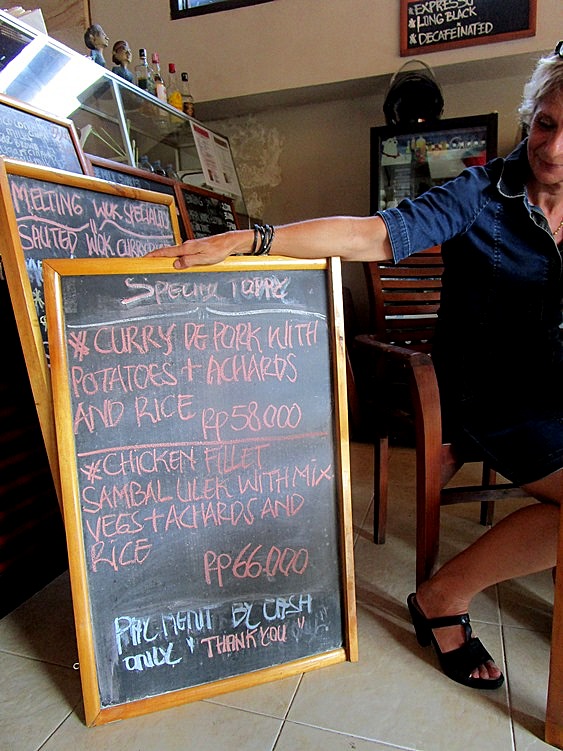 *EXPRESSO
*LONG BLACK
*DECAFEINATED
MELTING WOK SPECIALITY
SAUTED WOK
SPECIAL TODAY
*CURRY DE PORK WITH
POTATOES + ACHARDS
AND RICE Rp58000
*CHICKEN FILLET
SAMBAL ULEK WITH MIX
VEGS+ACHARDS AND
RICE Rp66.000
PAYMENT BY CASH
ONLY "THANK YOU"